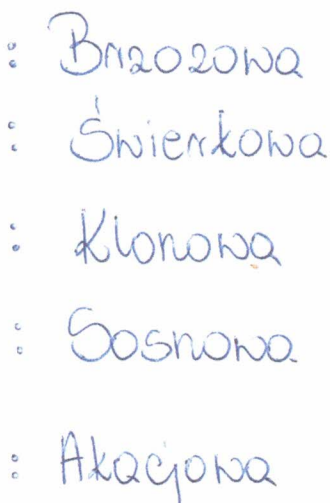 : Brzozowa
: Świerkowa
: Klonowa
: Sosnowa
: Akacjowa